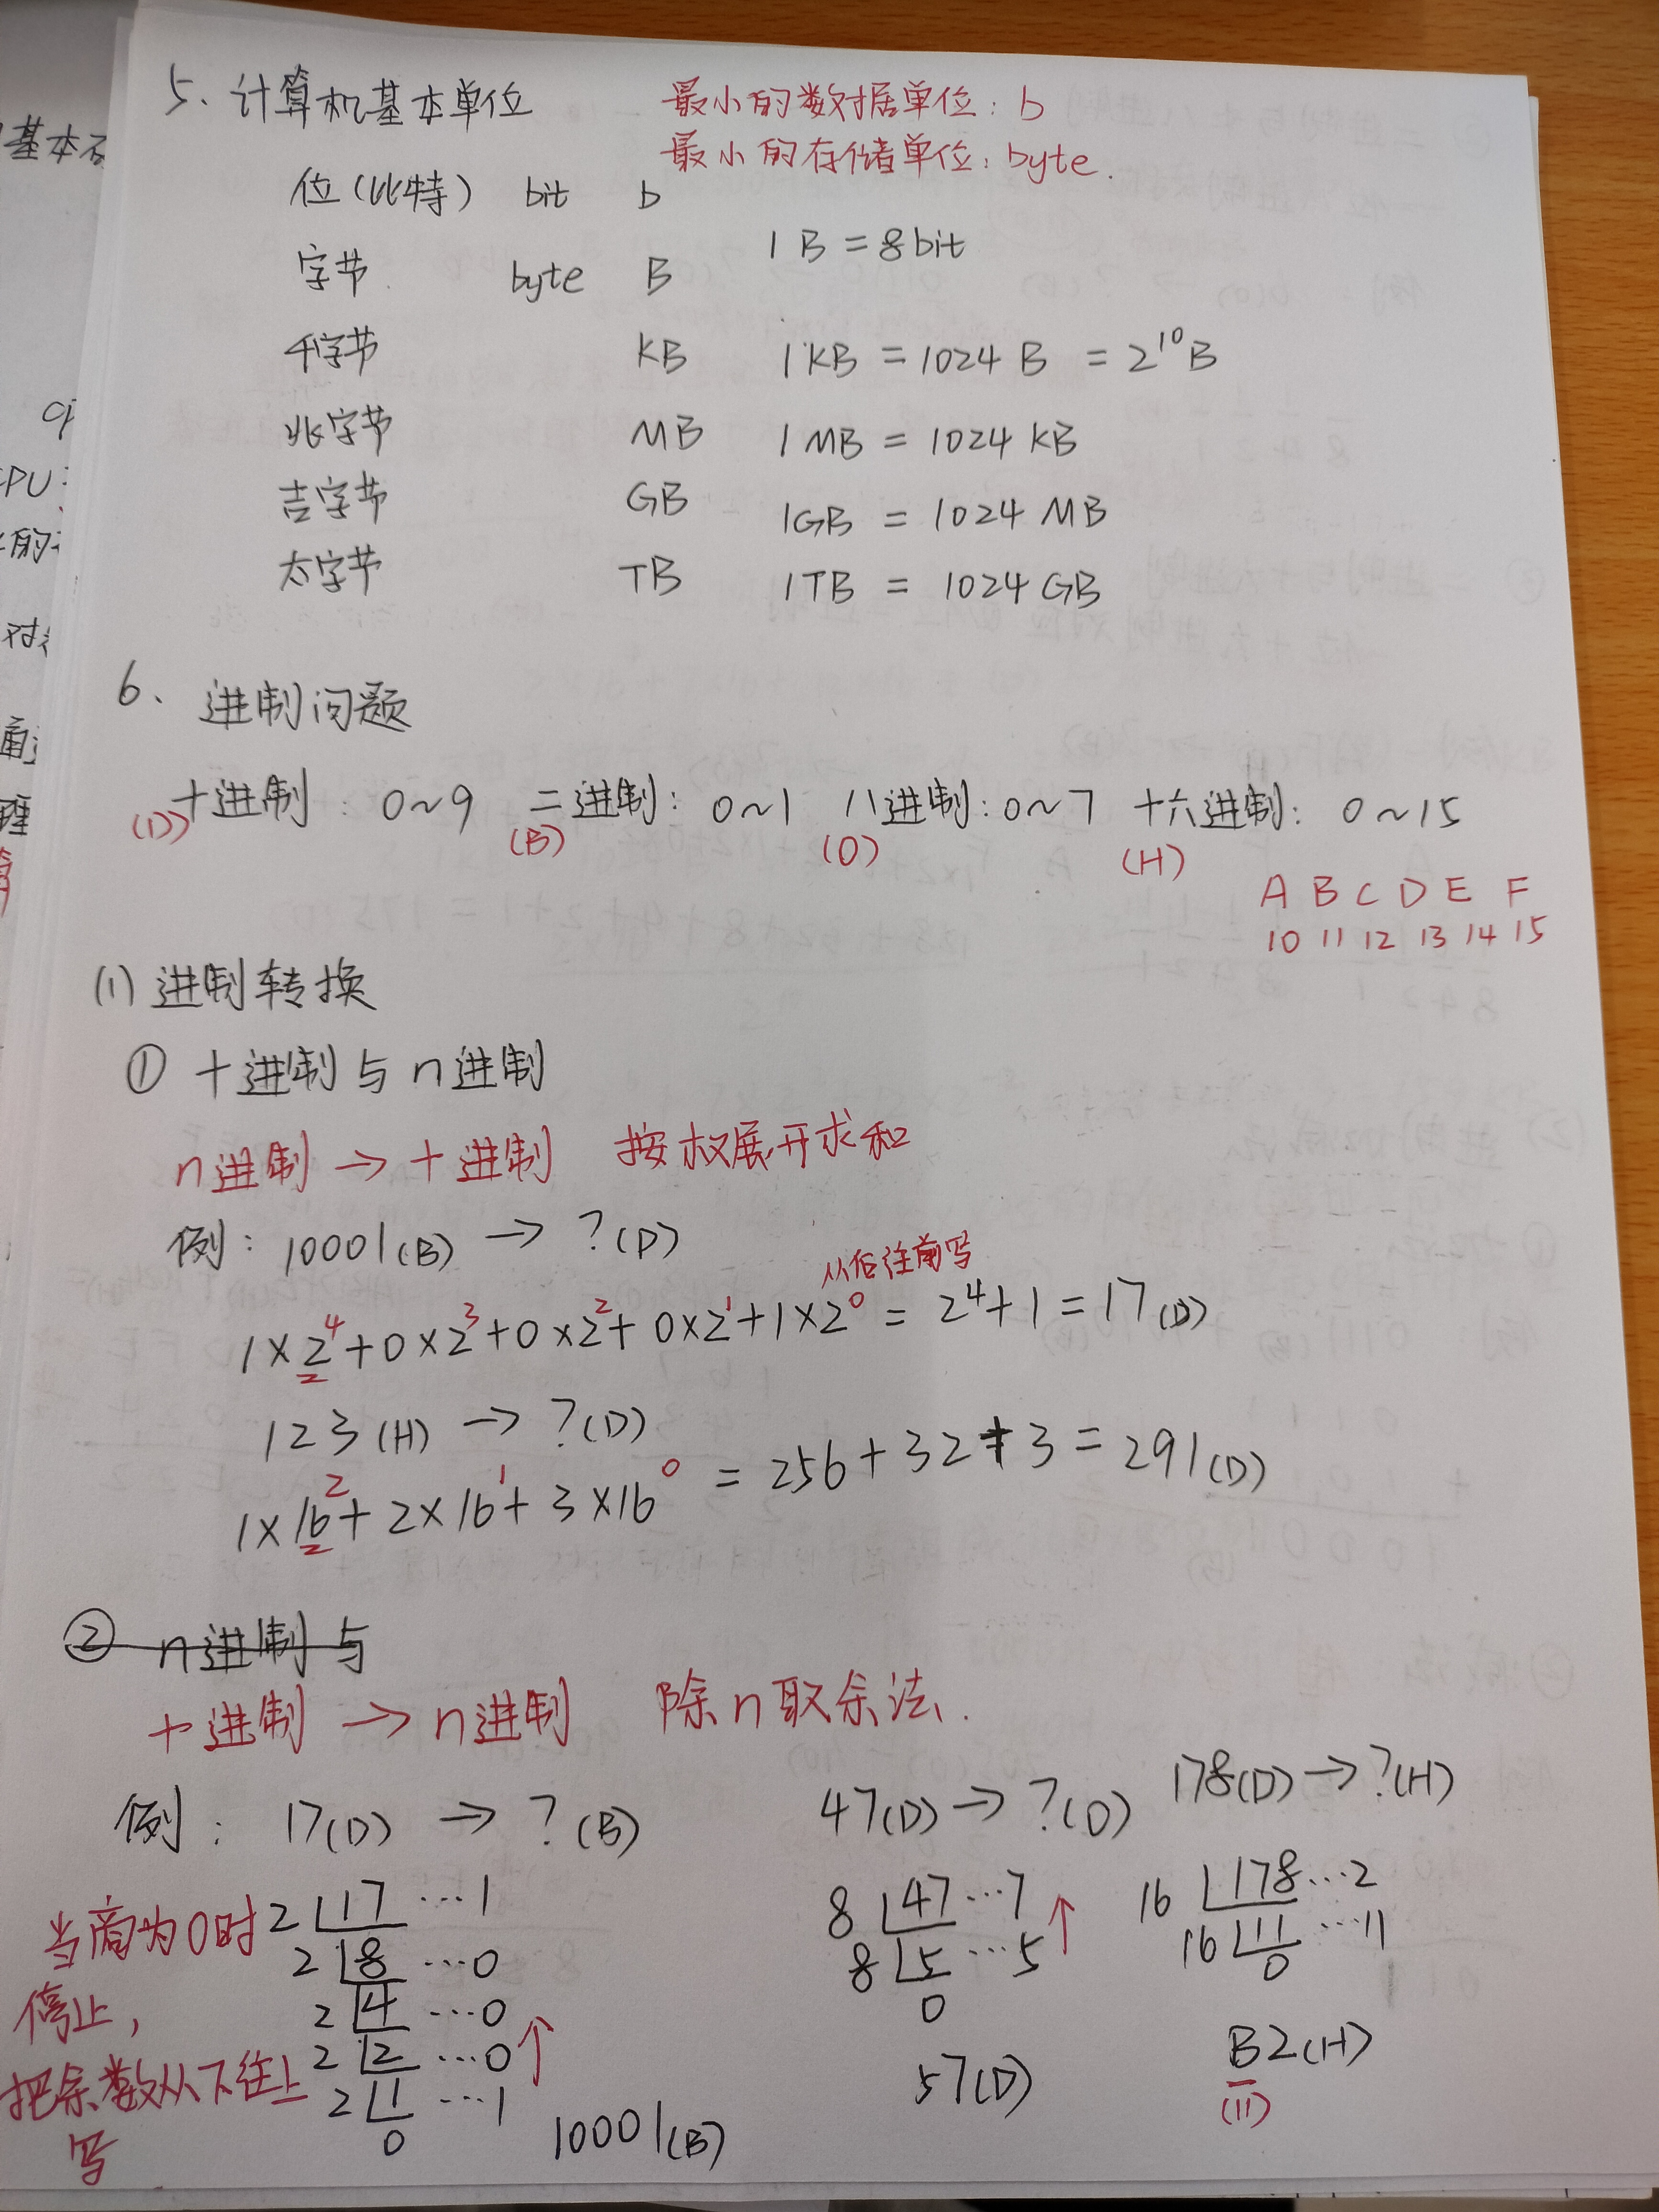 5、计算机基本单位
最小的数据单位：b
最小的存储单位：byte.
位（比特） bit b
字节 byte B 1 B = 8bit
千字节 KB 1 KB = 1024 B = 2¹⁰B
兆字节 MB 1 MB = 1024 KB
吉字节 GB 1GB = 1024 MB
太字节 TB 1TB = 1024 GB
6、进制问题
十进制：0~9 二进制：0~1 八进制：0~7 十六进制：0~15
(D) (B) (O) (H)
A B C D E F
10 11 12 13 14 15
(1) 进制转换
① 十进制与n进制
n进制 → 十进制 按权展开求和
例：10001(B) → ?(D)
从后往前写
1×2⁴+0×2³+0×2²+0×2¹+1×2⁰ = 2⁴+1 = 17(D)
123(H) → ?(D)
1×16²+2×16¹+3×16⁰ = 256+32+3 = 291(D)
② n进制与
十进制 → n进制 除n取余法.
例：17(D) → ?(B) 47(D) → ?(O) 178(D) → ?(H)
当商为0时
停止，
把余数从下往上
写
2 17 …1
2 8 …0
2 4 …0
2 2 …0 ↑
2 1 …1
0
10001(B)
8 47 …7
8 5 …5 ↑
0
57(D)
16 178 …2
16 11 …11
0
B2(H)
(11)